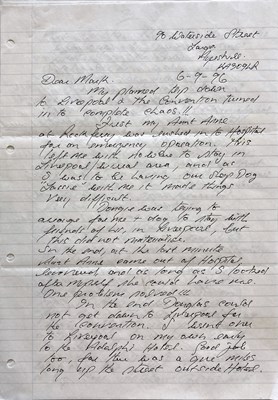 90 Waterside Street
Largs
Ayrshire
KA309LR
6-9-96
Dear Mark.
My planned trip down
to Liverpool & the Convention turned
in to complete chaos!!
First my Aunt Anne
at Rock Ferry was rushed in to Hospital
for an emergency operation. This
left me with no where to stay in
Liverpool/Wirral area, and as
I was to be having our Sheep Dog
with me it made things
very difficult.
Douglas was trying to
arrange for me + dog to stay with
friends of his, in Liverpool, but
this did not materialise.
In the end, at the last minute
Aunt Anne came out of Hospital,
and as long as I looked
after myself she could have me.
One problem solved.
In the end Douglas could
not get down to Liverpool for
the Convention. I went over
to Liverpool on my own early
to the Adelphi Hotel. Good job
too, for there was a queue miles
long up the street outside Hotel.